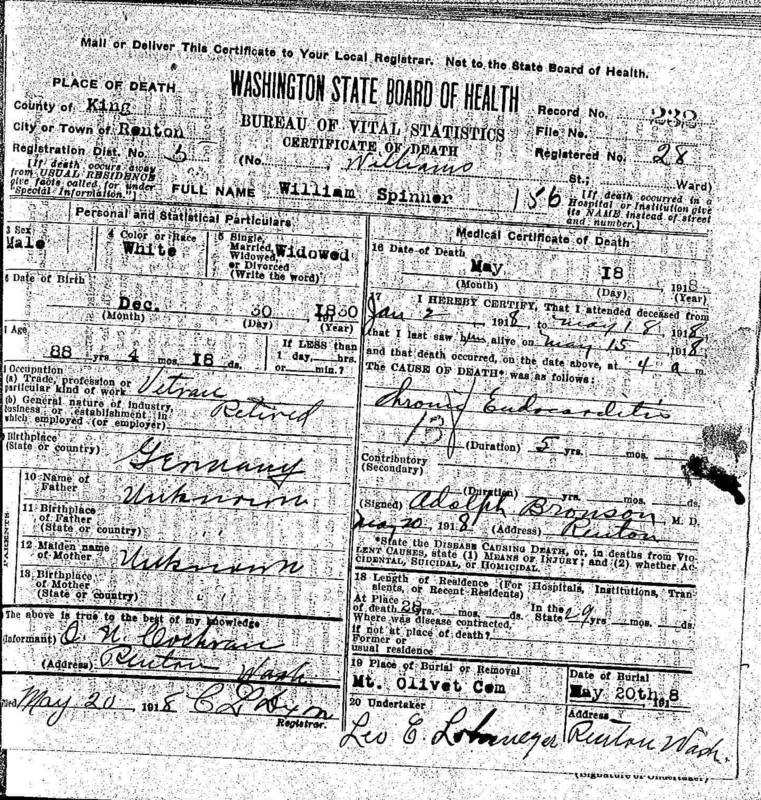 Mail or Deliver This Certificate to Your Local Registrar. Not to the State Board of Health.
PLACE OF DEATH
County of King
City or Town of Renton
Registration Dist. No. 5
[If death occurs away
from USUAL RESIDENCE
give facts called for under
"Special Information."]
WASHINGTON STATE BOARD OF HEALTH
BUREAU OF VITAL STATISTICS
CERTIFICATE OF DEATH
Record No. 232
File No.
Registered No. 28
(No. Williams St.; Ward)
156
[If death occurred in a
Hospital or Institution give
its NAME instead of street
and number.]
FULL NAME William Spinner
Personal and Statistical Particulars
3 Sex
Male
4 Color or Race
White
5 Single,
Married,
Widowed,
or Divorced
(Write the word)
Widowed
Date of Birth
Dec. 30 1830
(Month) (Day) (Year)
Age
88 yrs 4 mos. 18 ds.
If LESS than
1 day, hrs.
or min.?
Occupation
(a) Trade, profession or
particular kind of work Vetran
(b) General nature of industry,
business or establishment in
which employed (or employer) Retired
Birthplace
(State or country) Germany
PARENTS
10 Name of
Father Unknown
11 Birthplace
of Father
(State or country) " "
12 Maiden name
of Mother Unknown
13 Birthplace
of Mother
(State or country) " "
The above is true to the best of my knowledge
(Informant) O. N. Cochran
(Address) Renton Wash
Filed May 20 1918 C L Dixon
Registrar.
Medical Certificate of Death
16 Date of Death
May 18, 1918
(Month) (Day) (Year)
17 I HEREBY CERTIFY, That I attended deceased from
Jan 2, 1918, to May 18 1918
that I last saw him alive on May 15 1918
and that death occurred, on the date above, at 4 a m.
The CAUSE OF DEATH* was as follows:
Chronic Endocarditis
13
(Duration) 5 yrs. mos. ds.
Contributory
(Secondary)
(Duration) yrs. mos. ds.
(Signed) Adolph Bronson M. D.
May 20, 1918 (Address) Renton
*State the DISEASE CAUSING DEATH, or, in deaths from VIO-
LENT CAUSES, state (1) MEANS OF INJURY; and (2) whether AC-
CIDENTAL, SUICIDAL, or HOMICIDAL.
18 Length of Residence (For Hospitals, Institutions, Tran-
sients, or Recent Residents)
At Place
of death 28 yrs. mos. ds. In the
State 29 yrs mos. ds.
Where was disease contracted,
if not at place of death?
Former or
usual residence
19 Place of Burial or Removal
Mt. Olivet Cem
Date of Burial
May 20th 1918
20 Undertaker
Leo E.
Address
Renton Wash.
(Signature of Undertaker)